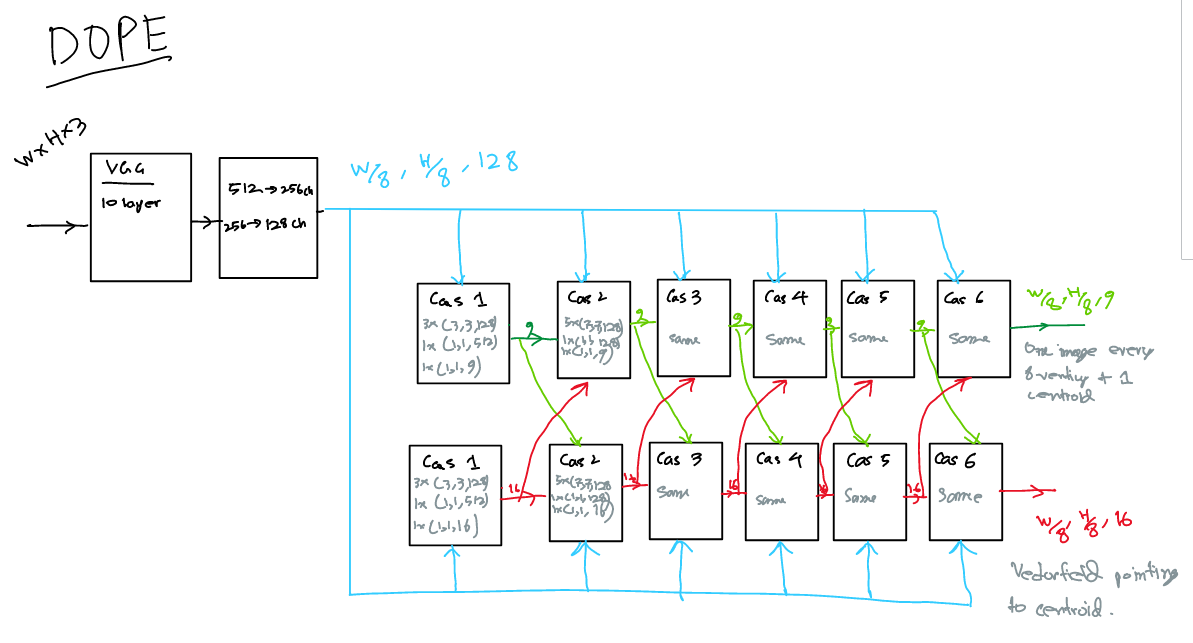 DOPE
W×H×3
VGG
10 layer
512→256ch
256→128ch
W/8, H/8, 128
Cas 1
3x (3,3,128)
1x (1,1,512)
1x (1,1,9)
9
Cas 2
5x(7,7,128)
1x(1,1,128)
1x(1,1,9)
9
Cas 3
Same
9
Cas 4
Same
9
Cas 5
Same
9
Cas 6
Same
W/8, H/8, 9
One image every
+ 1
centroid
Cas 1
3x (3,3,128)
1x (1,1,512)
1x (1,1,16)
16
Cas 2
5x(7,7,128
1x(1,1,128)
1x(1,1,16)
16
Cas 3
Same
16
Cas 4
Same
16
Cas 5
Same
16
Cas 6
Same
W/8, H/8, 16
Vectorfield pointing
to centroid.